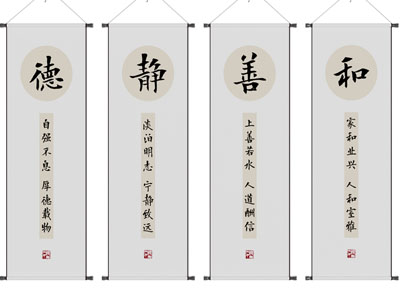 德
自强不息 厚德载物
静
淡泊明志 宁静致远
善
上善若水 人道酬信
和
家和业兴 人和室雅